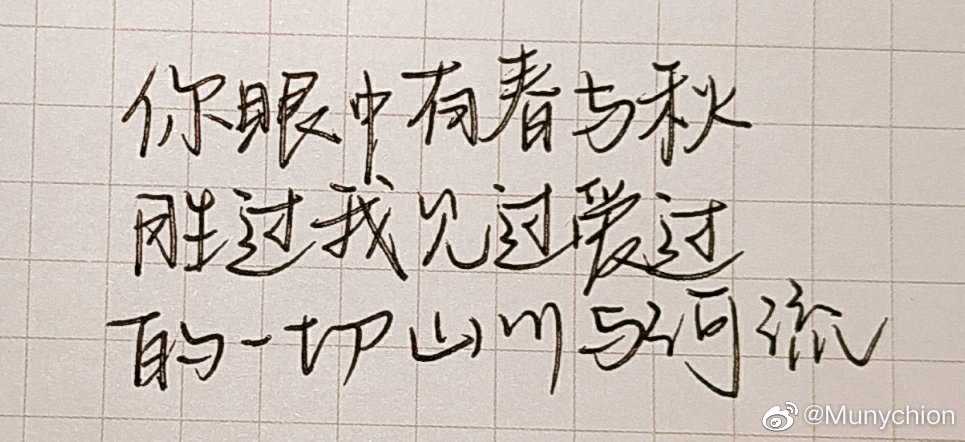 你眼中有春与秋
胜过我见过爱过
的一切山川与河流
@Munychion